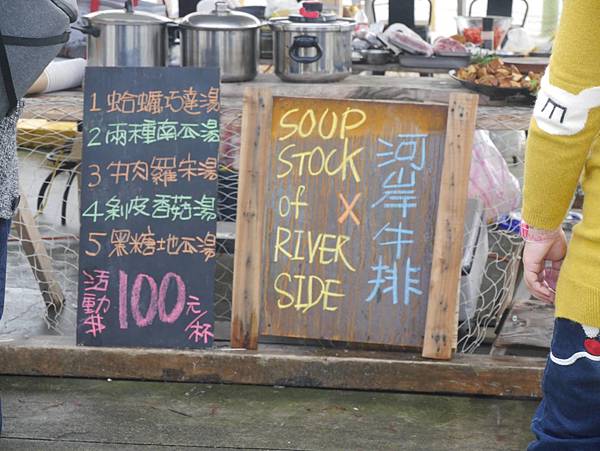 1 蛤蠣巧達湯
2 兩種南瓜湯
3 牛肉羅宋湯
4 剝皮香菇湯
5 黑糖地瓜湯
活動
100元/杯
SOUP
STOCK
of
RIVER
SIDE
X
河岸牛排